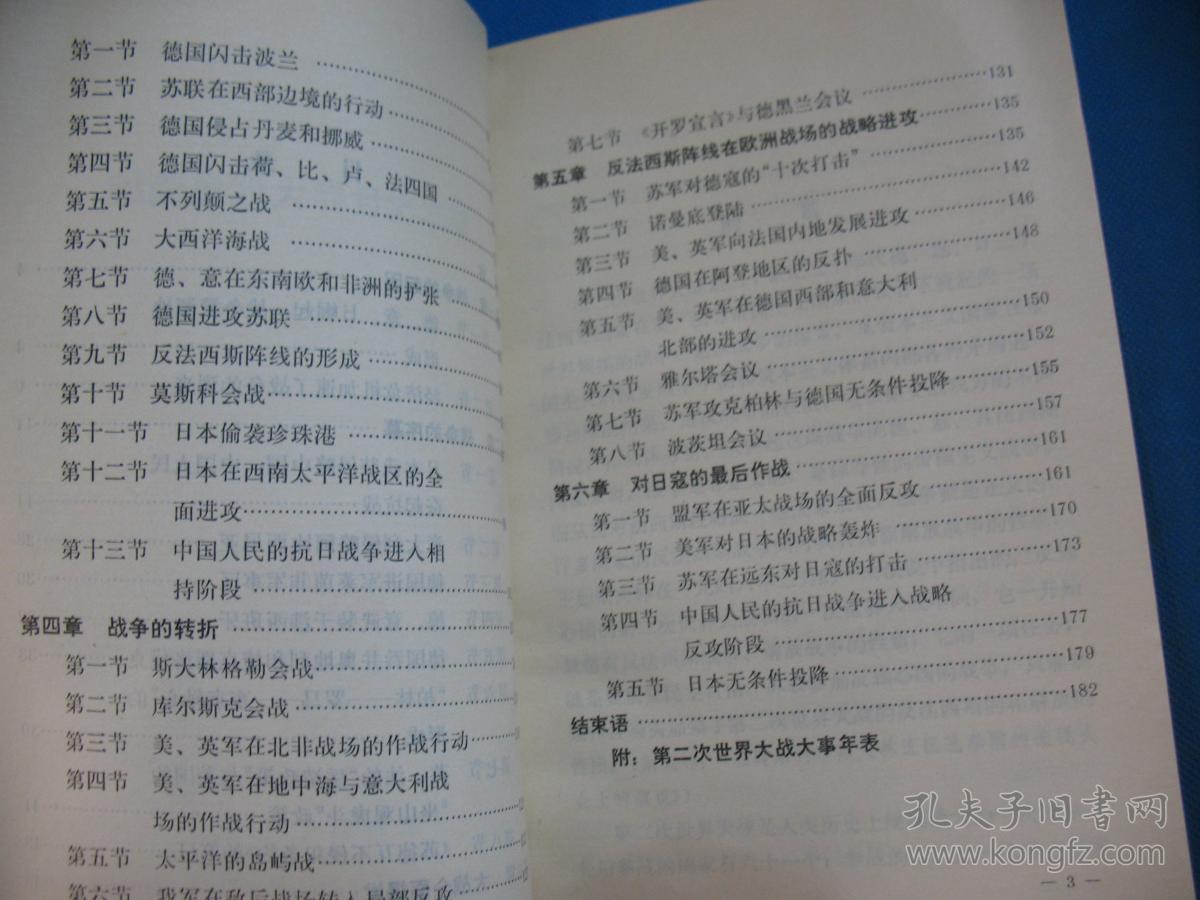 第一节 德国闪击波兰 ……
第二节 苏联在西部边境的行动……
第三节 德国侵占丹麦和挪威……
第四节 德国闪击荷、比、卢、法四国
第五节 不列颠之战 ……
第六节 大西洋海战 ……
第七节 德、意在东南欧和非洲的扩张
第八节 德国进攻苏联……
第九节 反法西斯阵线的形成……
第十节 莫斯科会战……
第十一节 日本偷袭珍珠港……
第十二节 日本在西南太平洋战区的全
面进攻……
第十三节 中国人民的抗日战争进入相
持阶段……
第四章 战争的转折 ……
第一节 斯大林格勒会战……
第二节 库尔斯克会战……
第三节 美、英军在北非战场的作战行动……
第四节 美、英军在地中海与意大利战
场的作战行动……
第五节 太平洋的岛屿战……
第六节 我军在敌后战场转入局部反攻
第七节 《开罗宣言》与德黑兰会议……131
第五章 反法西斯阵线在欧洲战场的战略进攻……135
第一节 苏军对德寇的“十次打击”……135
第二节 诺曼底登陆……142
第三节 美、英军向法国内地发展进攻……146
第四节 德国在阿登地区的反扑……148
第五节 美、英军在德国西部和意大利
北部的进攻……150
第六节 雅尔塔会议……152
第七节 苏军攻克柏林与德国无条件投降……155
第八节 波茨坦会议……157
第六章 对日寇的最后作战……161
第一节 盟军在亚太战场的全面反攻……161
第二节 美军对日本的战略轰炸……170
第三节 苏军在远东对日寇的打击……173
第四节 中国人民的抗日战争进入战略
反攻阶段……177
第五节 日本无条件投降……179
结束语……182
附：第二次世界大战大事年表
— 3 —
孔夫子旧书网
www.kongfz.com